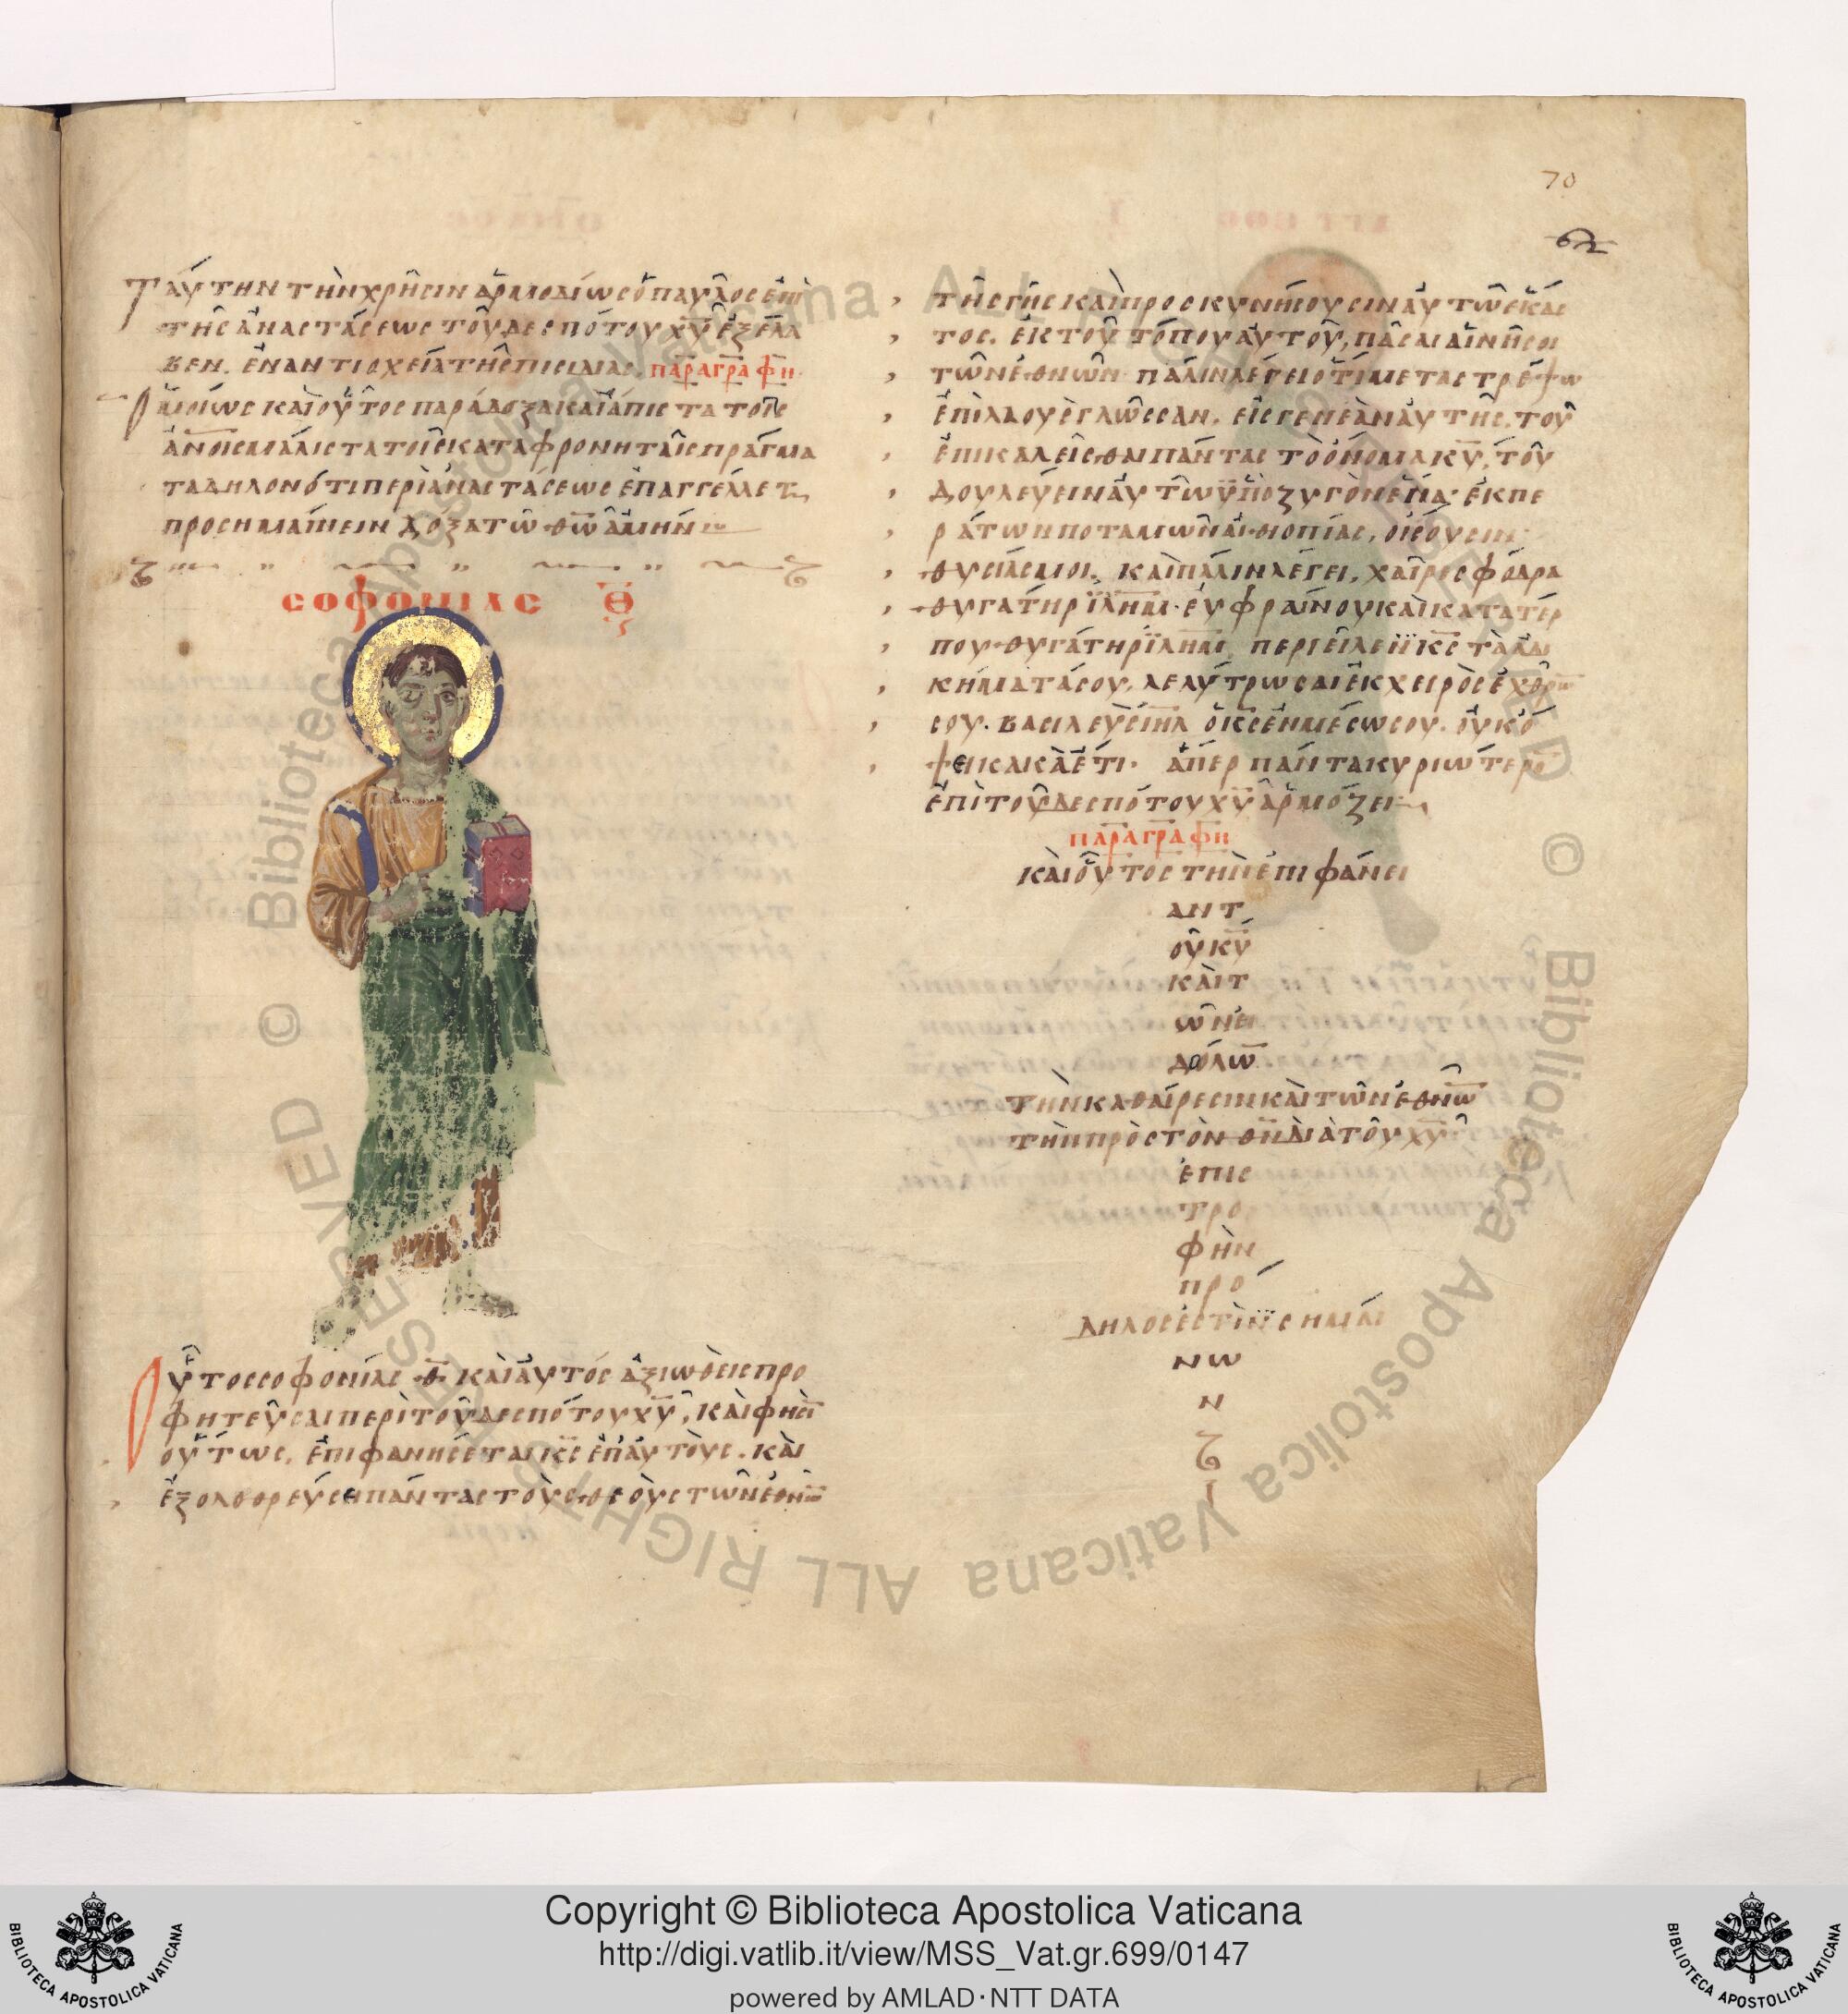 70
Ταύτην τὴν χρῆσιν ἁρμοδίως ὁ παῦλος ἐπὶ
τῆς ἀναστάσεως τοῦ δεσπότου χ̅υ̅ ἐξέλα
βεν. ἐν ἀντιοχεία τῆς πισιδίας. παραγραφή.
Ὁμοίως καὶ οὗτος παράδοξα καὶ ἄπιστα τοῖς
ἀν̅ο̅ι̅ς μάλιστα τοῖς καταφρονηταῖς πράγμα
τα δηλονότι περὶ ἀναστάσεως ἐπαγγέλλεται
προσημαίνειν δόξα τῶ θ̅ω̅ ἀμήν
ΣΟΦΟΝΙΑΣ Θ
Οὗτος σοφονίας θ̅ καὶ αὐτὸς ἀξιωθεὶς προ
φητεῦσαι περὶ τοῦ δεσπότου χ̅υ̅, καὶ φησὶ
οὕτως, ἐπιφανήσεται κ̅ς̅ ἐπ' αὐτούς. καὶ
ἐξολοθρεύσει πάντας τοὺς θεοὺς τῶν ἐθνῶν
τῆς γῆς καὶ προσκυνήσουσιν αὐτῶ ἕκασ
τος. ἐκ τοῦ τόπου αὐτοῦ, πᾶσαι αἱ νῆσοι
τῶν ἐθνῶν· πάλιν λέγει ὅτι μεταστρέψω
ἐπὶ λαοὺς γλῶσσαν. εἰς γενεὰν αὐτῆς. τοῦ
ἐπικαλεῖσθαι πάντας τὸ ὄνομα κ̅υ̅, τοῦ
δουλεύειν αὐτῶ ὑπὸ ζυγὸν ἕνα· ἐκ πε
ράτων ποταμῶν αἰθιοπίας, οἴσουσιν
θυσίας μοι. καὶ πάλιν λέγει, χαῖρε σφόδρα
θυγατὴρ ι̅λ̅η̅μ̅· εὐφραίνου καὶ κατατέρ
που θυγάτηρ ι̅λ̅η̅μ̅ περιεῖλεν κ̅ς̅ τὰ ἀδι
κήματά σου. λελύτρωσαι ἐκ χειρὸς ἐχθρῶν
σου. βασιλεὺς ι̅η̅λ̅ ὁ κ̅ς̅ ἐν μέσω σου. οὐκ ό
ψει κακὰ ἔτι· ἅπερ πάντα κυριώτερον
ἐπὶ τοῦ δεσπότου χ̅υ̅ ἁρμόζει
παραγραφή
καὶ οὗτος τὴν ἐπιφάνει
αν τ
οῦ κ̅υ̅
καὶ τ
ῶν εἰ
δόλω̅
τὴν καθαίρεσιν καὶ τῶν ἐθνῶ̅
τὴν πρὸς τὸν θ̅ν̅ διὰ τοῦ χ̅υ̅
ἐπισ
τρο
φὴν
πρό
δηλός ἐστιν σημαί
νω
ν
Copyright © Biblioteca Apostolica Vaticana
http://digi.vatlib.it/view/MSS_Vat.gr.699/0147
powered by AMLAD·NTT DATA
BIBLIOTECA APOSTOLICA VATICANA
BIBLIOTECA APOSTOLICA VATICANA
© Biblioteca Apostolica Vaticana ALL RIGHTS RESERVED
© Biblioteca Apostolica Vaticana ALL RIGHTS RESERVED